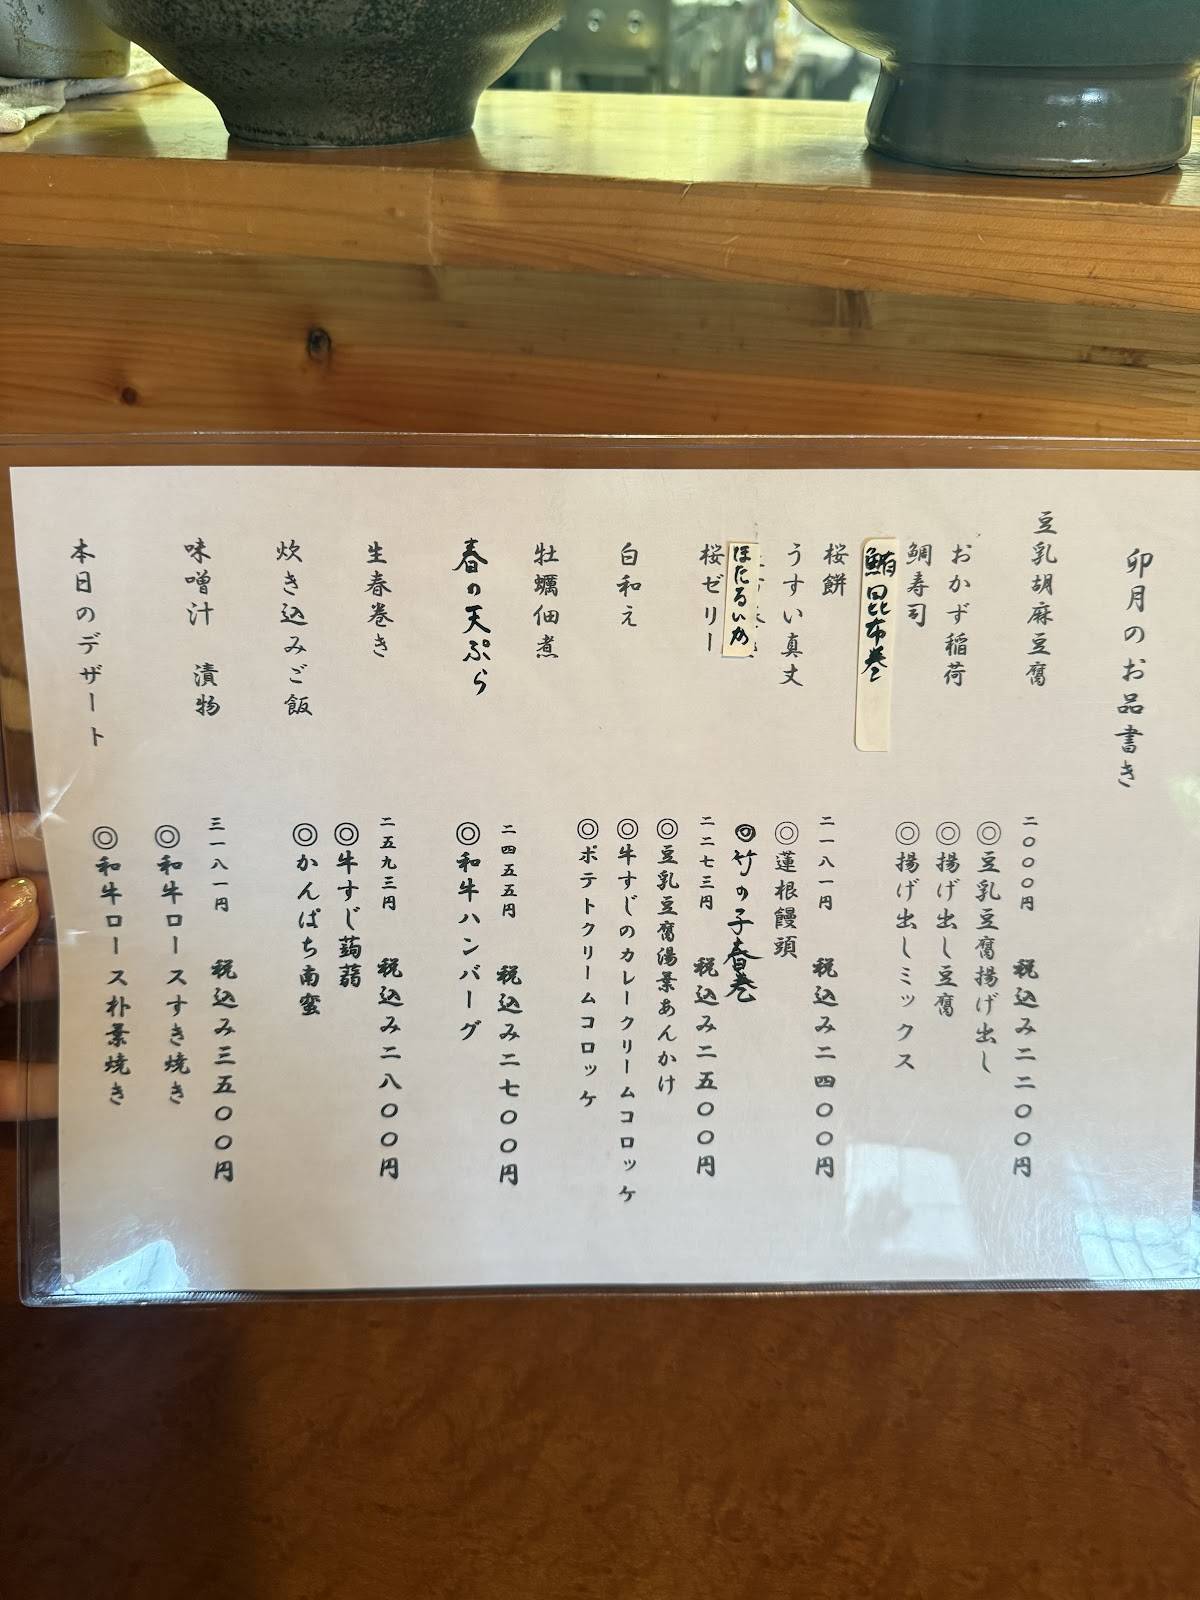 卯月のお品書き
豆乳胡麻豆腐
おかず稲荷
鯛寿司
鮪昆布巻
桜餅
うすい真丈
ほたるいか
桜ゼリー
白和え
牡蠣佃煮
春の天ぷら
生春巻き
炊き込みご飯
味噌汁 漬物
本日のデザート
二〇〇〇円 税込み二二〇〇円
◎豆乳豆腐揚げ出し
◎揚げ出し豆腐
◎揚げ出しミックス
二一八一円 税込み二四〇〇円
◎蓮根饅頭
◎竹の子春巻
二二七三円 税込み二五〇〇円
◎豆乳豆腐湯葉あんかけ
◎牛すじのカレークリームコロッケ
◎ポテトクリームコロッケ
二四五五円 税込み二七〇〇円
◎和牛ハンバーグ
二五九三円 税込み二八〇〇円
◎牛すじ蒟蒻
◎かんぱち南蛮
三一八一円 税込み三五〇〇円
◎和牛ロースすき焼き
◎和牛ロース朴葉焼き